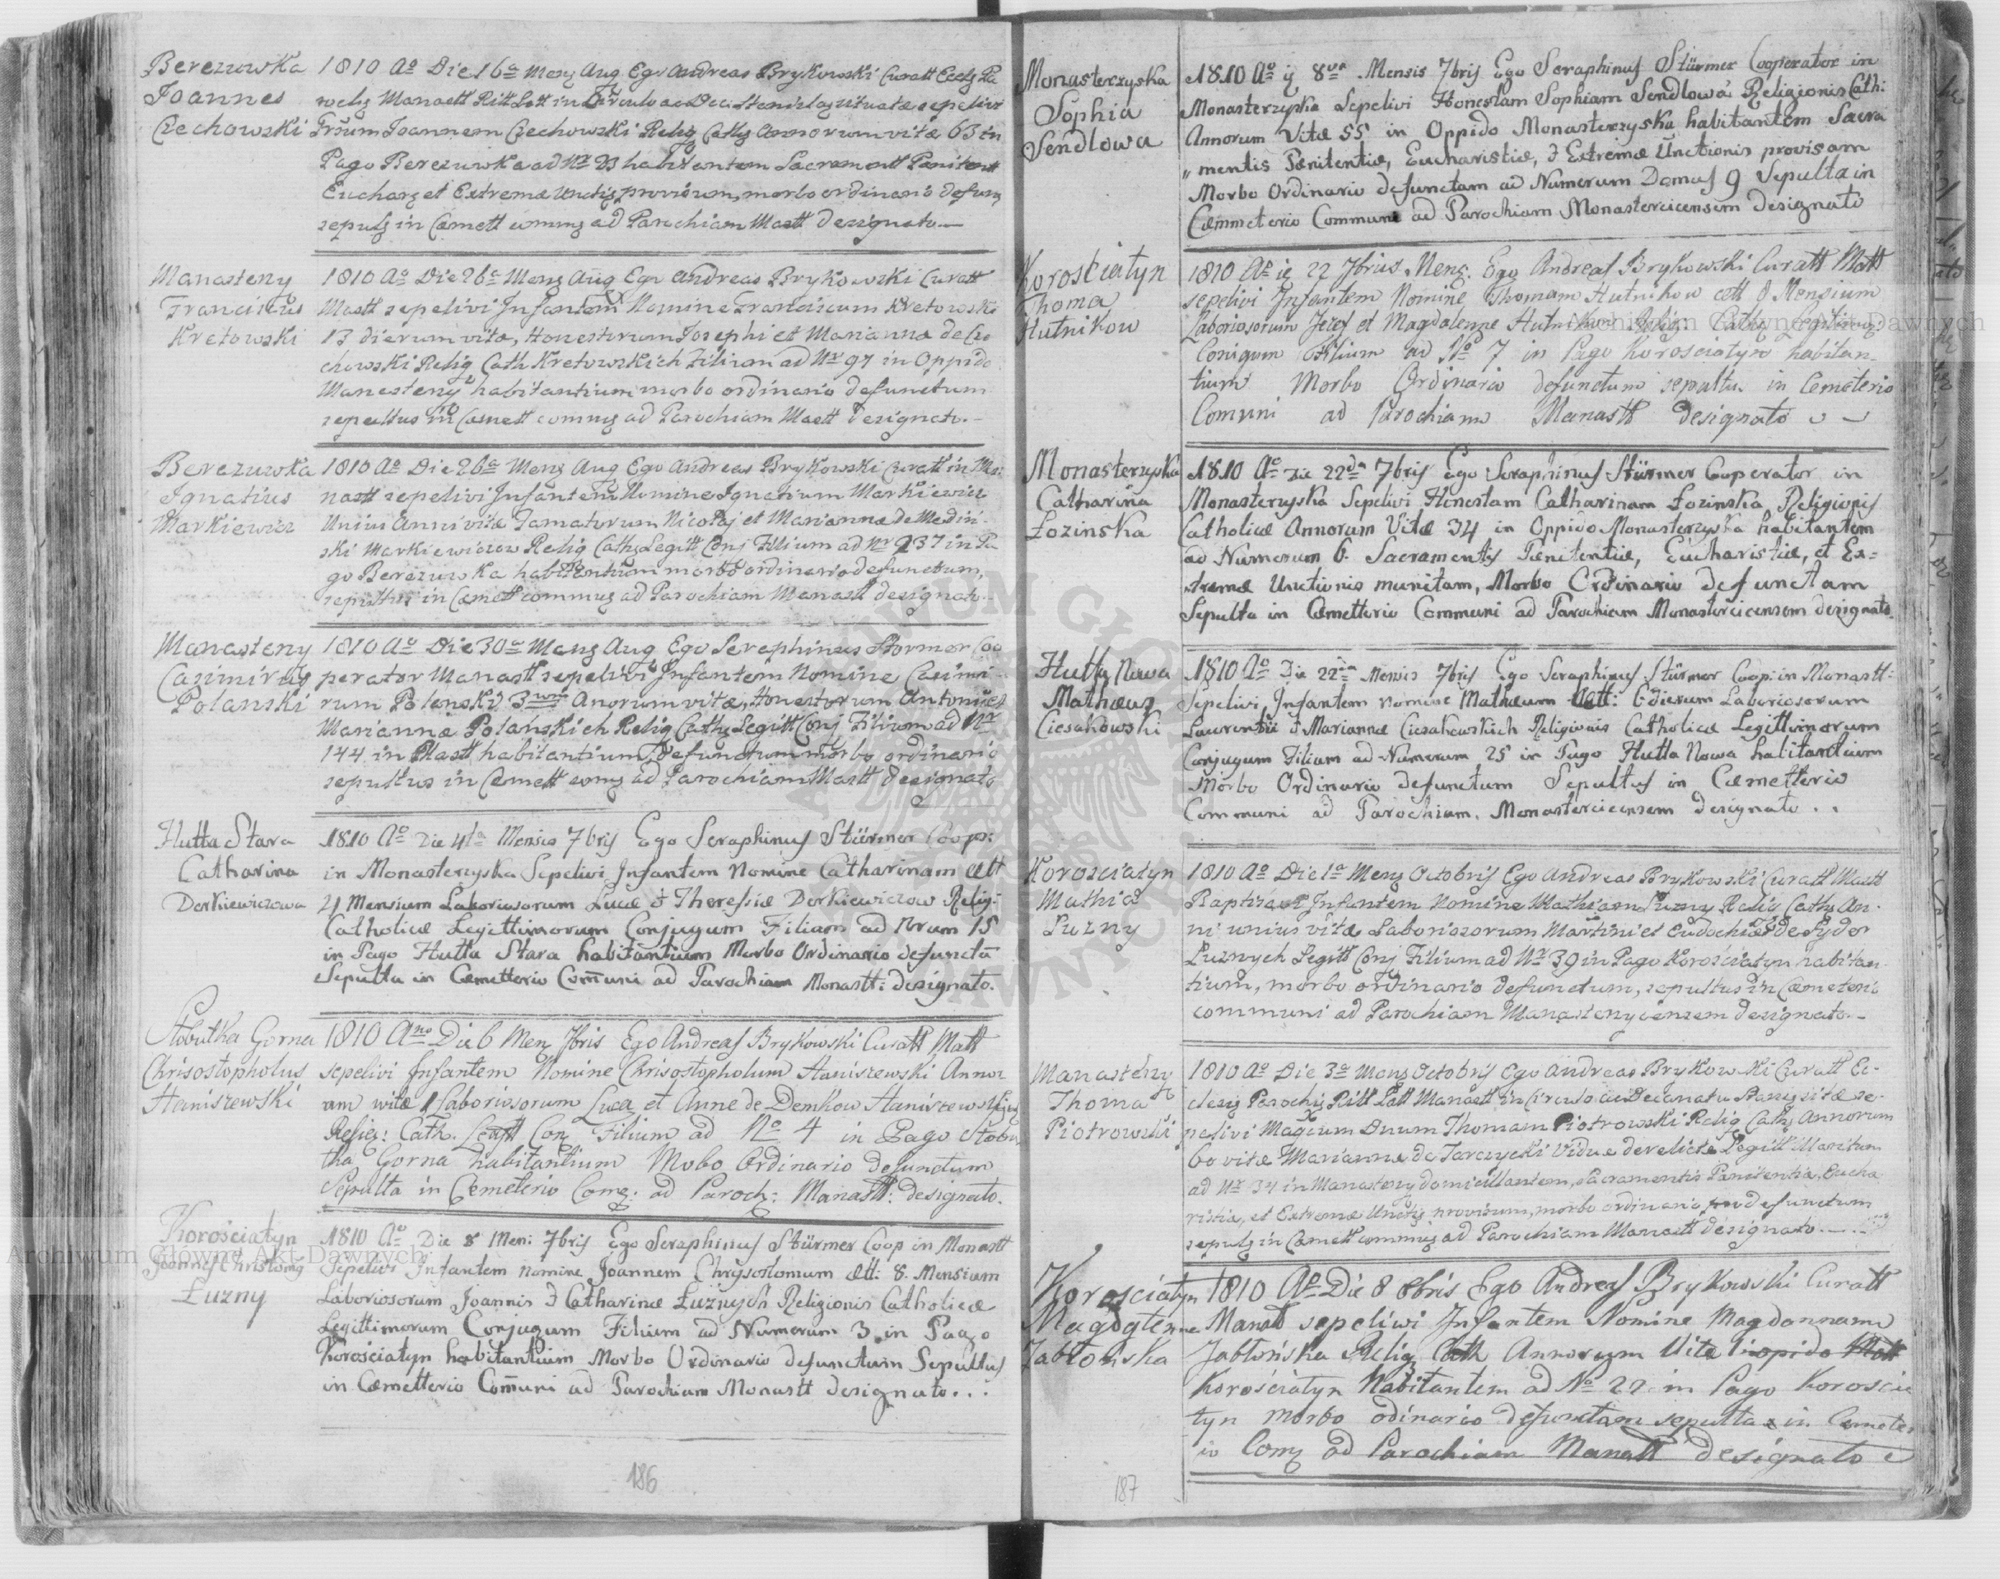 Berezuwka
Joannes
Czechowski
1810 Aº Die 16ª Menʒ Aug Ego Andreas Brykowski Curatt Eccls Pa
rochʒ Manastt Ritt Latt in Circulo ac Deca Stanislaʒ situate sepelivi
Joannem Czechowski Religʒ Cathʒ Annorum vitæ 63 in
Pago Berezuwka ad Nr 23 habitantem Sacrament Pœnitent
Eucharʒ et Extremæ Unctiʒ provisum, morbo ordinario defunʒ
sepulʒ in Cæmett commʒ ad Parochiam Mastt designato
Manasteny
Franciscus
Kretowski
1810 Aº Die 26ª Menʒ Aug Ego Andreas Brykowski Curatt
Mastt sepelivi Infantem Nomine Franciscum Kretowski
13 dierum vitæ, Honestorum Josephi et Marianna de Cze
chowski Religʒ Cath Kretowskich Filium ad Nr 97 in Oppido
Manasteny habitantium morbo ordinario defunctum
sepultus in Cæmett commʒ ad Parochiam Mastt designato
Berezuwka
Ignatius
Markiewicz
1810 Aº Die 26ª Menʒ Aug Ego Andreas Brykowski Curatt in Ma
nastt sepelivi Infantem Nomine Ignatium Markiewicz
Unius Anni vitæ Famatorum Nicołaj et Mariannæ de Medin
ski Markiewiczow Religʒ Cathʒ Legitt Conj Filium ad Nr 237 in Pa
go Berezuwka habitantium morbo ordinario defunctum,
sepultus in Cæmett commuʒ ad Parochiam Manastt designato
Manasteny
Casimirus
Polanski
1810 Aº Die 30ª Menʒ Aug Ego Seraphinus Stormer Coo
perator Manastt sepelivi Infantem Nomine Casimi
rum Polanski 3um Anorum vitæ, Honestorum Antonii et
Marianna Polanskich Religʒ Cathʒ Legitt Conj Filium ad Nr
144 in Mastt habitantium, defunctum morbo ordinario
sepultus in Cæmett comʒ ad Parochiam Mastt designato
Hutta Stara
Catharina
Derkiewiczowa
1810 Aº Die 4ta Mensis 7bris Ego Seraphinus Stürmer Coop:
in Monasterzyska Sepelivi Infantem Nomine Catharinam ætt
21 Mensium Laboriosorum Lucæ & Theresiæ Derkiewiczow Relig:
Catholicæ Legittimorum Conjugum Filiam ad Nrum 15
in Pago Hutta Stara habitantium Morbo Ordinario defunctā
Sepulta in Cæmetterio Com̄uni ad Parochiam Monastt: designato.
Słobutka Gorna
Chrisostopholus
Staniszewski
1810 Ano Die 6 Menʒ 7bris Ego Andreas Brykowski Curatt Matt
sepelivi Infantem Nomine Chrisostopholum Staniszewski Annor
um witæ 1 Laboriosorum Lucæ et Anne de Demkow Staniszewskich
Relig: Cath. Legitt Conʒ Filium ad No 4 in Pago Słobu
tka Gorna habitantium Mobo Ordinario defunctum
Sepulta in Cemeterio Comʒ: ad Paroch: Manastt: designato.
Korościatyn
Joannes Christomʒ
Łuzny
1810 Aº Die 8 Men: 7bris Ego Seraphinus Stürmer Coop in Monastt
Sepelivi Infantem nomine Joannem Chrysostomum ætt: 8. Mensium
Laboriosorum Joannis & Catharinæ Łuznych Religionis Catholicæ
Legittimorum Conjugum Filium ad Numerum 3. in Pago
Korościatyn habitantium Morbo Ordinario defunctum Sepultus
in Cæmetterio Com̄uni ad Parochiam Monastt designato...
186
Monasterzyska
Sophia
Sendlowa
1810 Aº ig 8va Mensis 7bris Ego Seraphinus Stürmer Cooperator in
Monasterzyska Sepelivi Honestam Sophiam Sendlowa Religionis Cath:
Annorum Vitæ 55 in Oppido Monasterzyska habitantem Sacra
" mentis Pænitentiæ, Eucharistiæ, & Extremæ Unctionis provisam
Morbo Ordinario defunctam ad Numerum Domus 9 Sepulta in
Cæmmeterio Communi ad Parochiam Monastercicensem designato
Korościatyn
Thoma
Hutnikow
1810 Aº ig 22 7bris Menʒ. Ego Andreas Brykowski Curatt Matt
sepelivi Infantem Nomine Thomam Hutnikow ætt 8 Mensium
Laboriosorum Jozef et Magdalenne Hutnikow Relig Cathʒ Legitimʒ:
Conigum Filium ad No 7 in Pago Korosciatyn habitan-
tium Morbo Ordinario defunctum sepultu in Cemeterio
Comuni ad Parochiam Manastt designato
Monasterzyska
Catharina
Łozinska
1810 Aº Die 22da 7bris Ego Seraphinus Stürmer Cooperator in
Monasterzyska Sepelivi Honestam Catharinam Łozinska Religionis
Catholicæ Annorum Vitæ 34 in Oppido Monasterzyska habitantem
ad Numerum 6. Sacramentis Pænitentiæ, Eucharistiæ, et Ex=
tremæ Unctionis munitam, Morbo Ordinario defunctam
Sepulta in Cæmetterio Communi ad Parochiam Monastercicensem designato.
Hutty Nowa
Matheus
Ciesakowski
1810 Aº Die 22da Mensis 7bris Ego Seraphinus Stürmer Coop: in Monastt:
Sepelivi Infantem nomine Mathæum ætt: 6 dierum Laboriosorum
Laurentii & Mariannæ Ciesakowskich Religionis Catholicæ Legittimorum
Conjugum Filium ad Numerum 25 in Pago Hutta Nowa habitantium
Morbo Ordinario defunctum Sepultus in Cæmetterio
Communi ad Parochiam, Monastercicensem designato..
Korościatyn
Mathias
Łuzny
1810 Aº Die 1ª Menʒ Octobris Ego Andreas Brykowski Curatt Mastt
Baptisavi Infantem Nomine Mathiam Łuzny Religʒ Cathʒ An-
ni unius vitæ Laboriosorum Martini et Eudochiæ de Fydor
Łuznych Legitt Conj Filium ad Nr 39 in Pago Korościatyn habitan
tium, morbo ordinario defunctum, sepultus in Cæmeterio
communi ad Parochiam Manastenycensem designato
Manasteny
Thoma
Piotrowski
1810 Aº Die 3ª Menʒ Octobris Ego Andreas Brykowski Curatt Ec-
clesiʒ Parochʒ Ritt Latt Manastt in Circulo ac Decanatu Stanʒ sitæ se-
pelivi Thomam Piotrowski Religʒ Cathʒ Annorum
60 vitæ Marianna de Tarczycki Viduæ derelictæ Legitt Maritum
ad Nr 34 in Manasteny domicillantem, Sacramentis Pænitentiæ, Eucha
ristiæ, et Extremæ Unctiʒ provisum, morbo ordinario defunctum
sepulʒ in Cæmett commuʒ ad Parochiam Manastt designato
Korościatyn
Magdglenne
Jabłońska
1810 Aº Die 8 8bris Ego Andreas Brykowski Curatt
Manast sepeliwi Infantem Nomine Magdannam
Jabłońska Relig Cath Annorum Vitæ
Korościatyn habitantem ad No 22 in Pago Korościa
tyn morbo odinario defunctam sepulta in Cemeter
io Comʒ ad Parochiam Manastt designato
187
Archiwum Główne Akt Dawnych
Archiwum Główne Akt Dawnych
ARCHIWUM GŁÓWNE AKT DAWNYCH